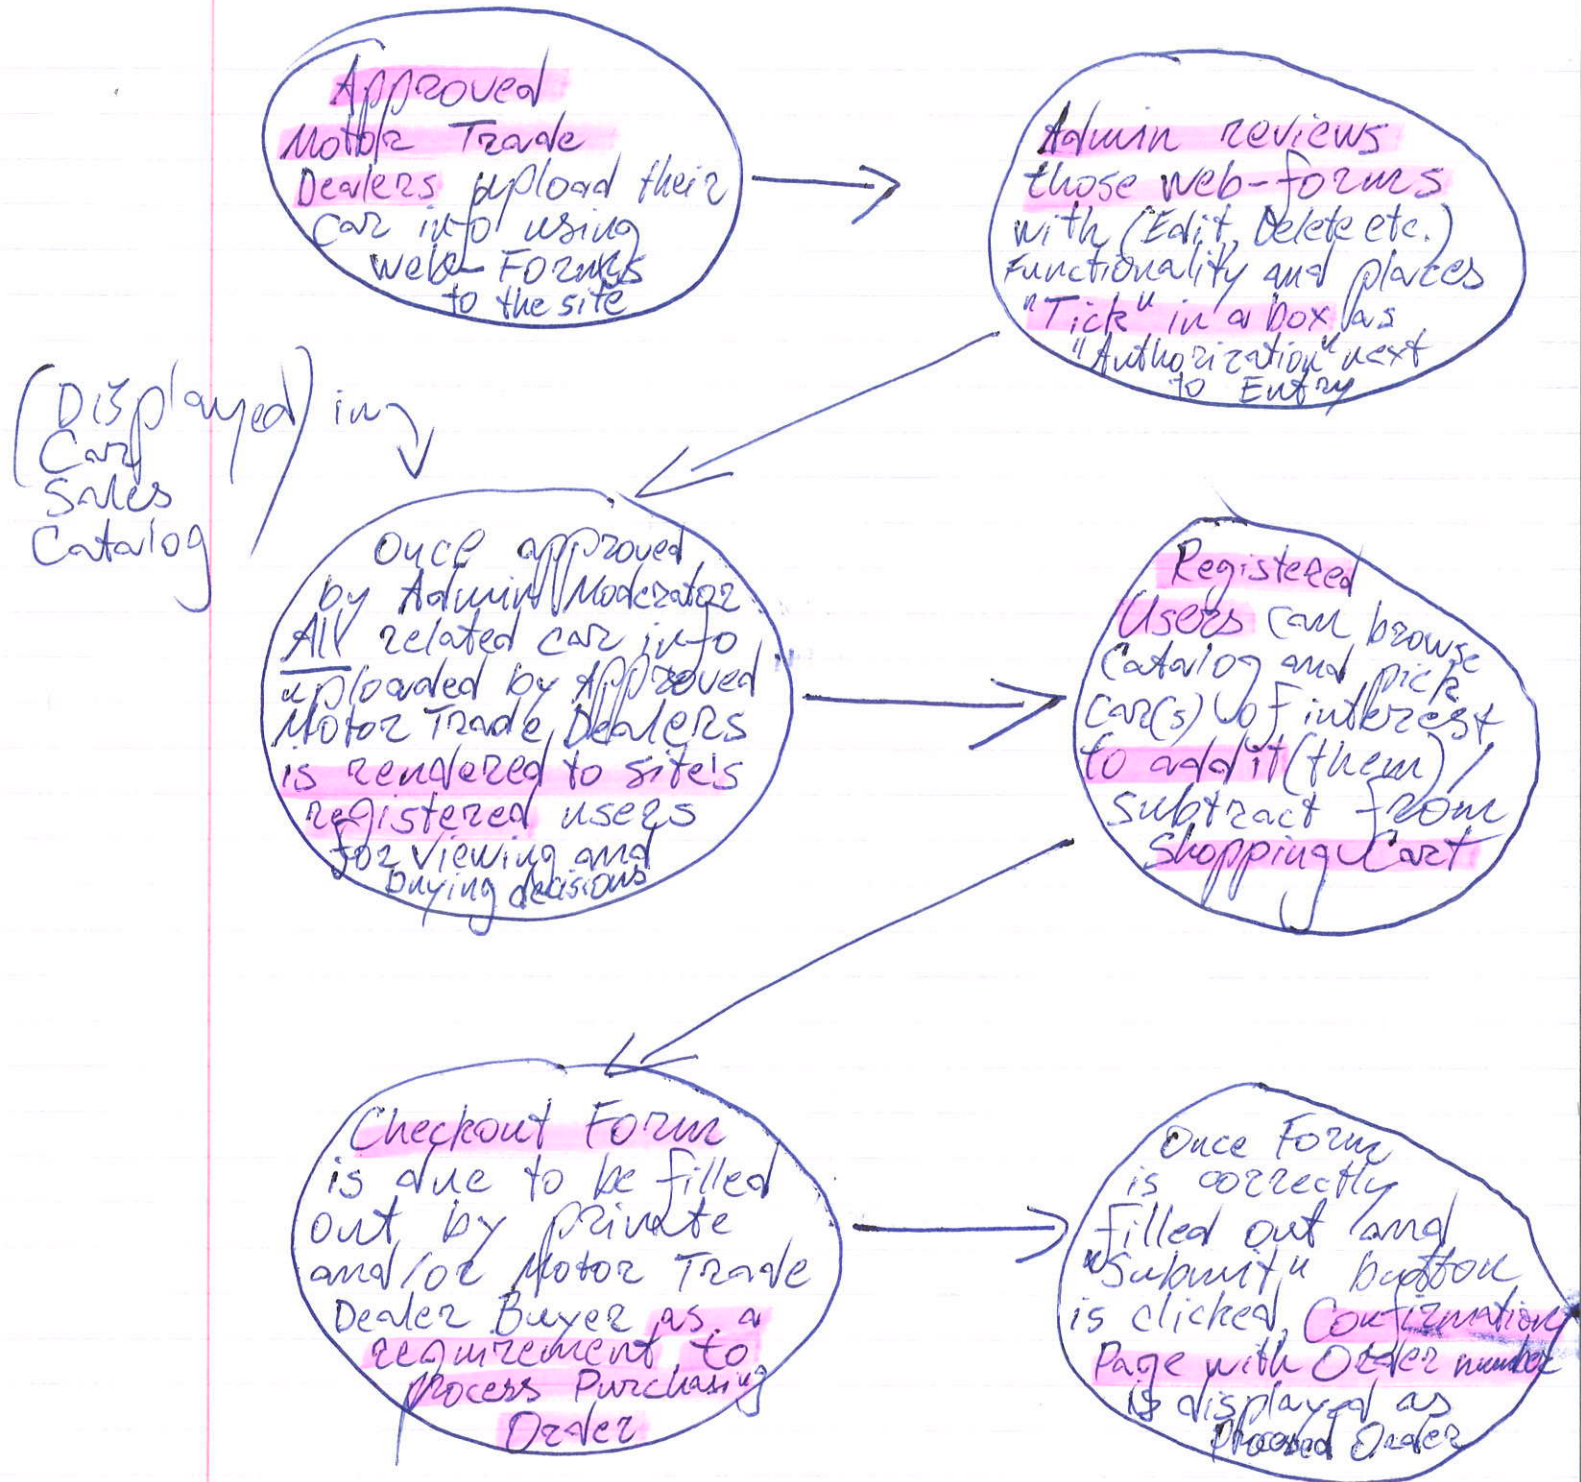 Approved
Motor Trade
Dealers upload their
car info using
web-Forms
to the site
Admin reviews
those web-forms
with (Edit, Delete etc.)
Functionality and places
"Tick" in a box as
"Authorization" next
to Entry
(Displayed) in
Car
Sales
Catalog
Once approved
by Admin/Moderator
All related car info
uploaded by Approved
Motor Trade Dealers
is rendered to site's
registered users
for viewing and
buying decisions
Registered
Users can browse
Catalog and pick
car(s) of interest
to add it (them) /
subtract from
Shopping Cart
Checkout Form
is due to be filled
out by private
and/or Motor Trade
Dealer Buyer as a
requirement to
process Purchasing
Order
Once Form
is correctly
filled out and
"Submit" button
is clicked, Confirmation
Page with Order number
is displayed as
Processed Order